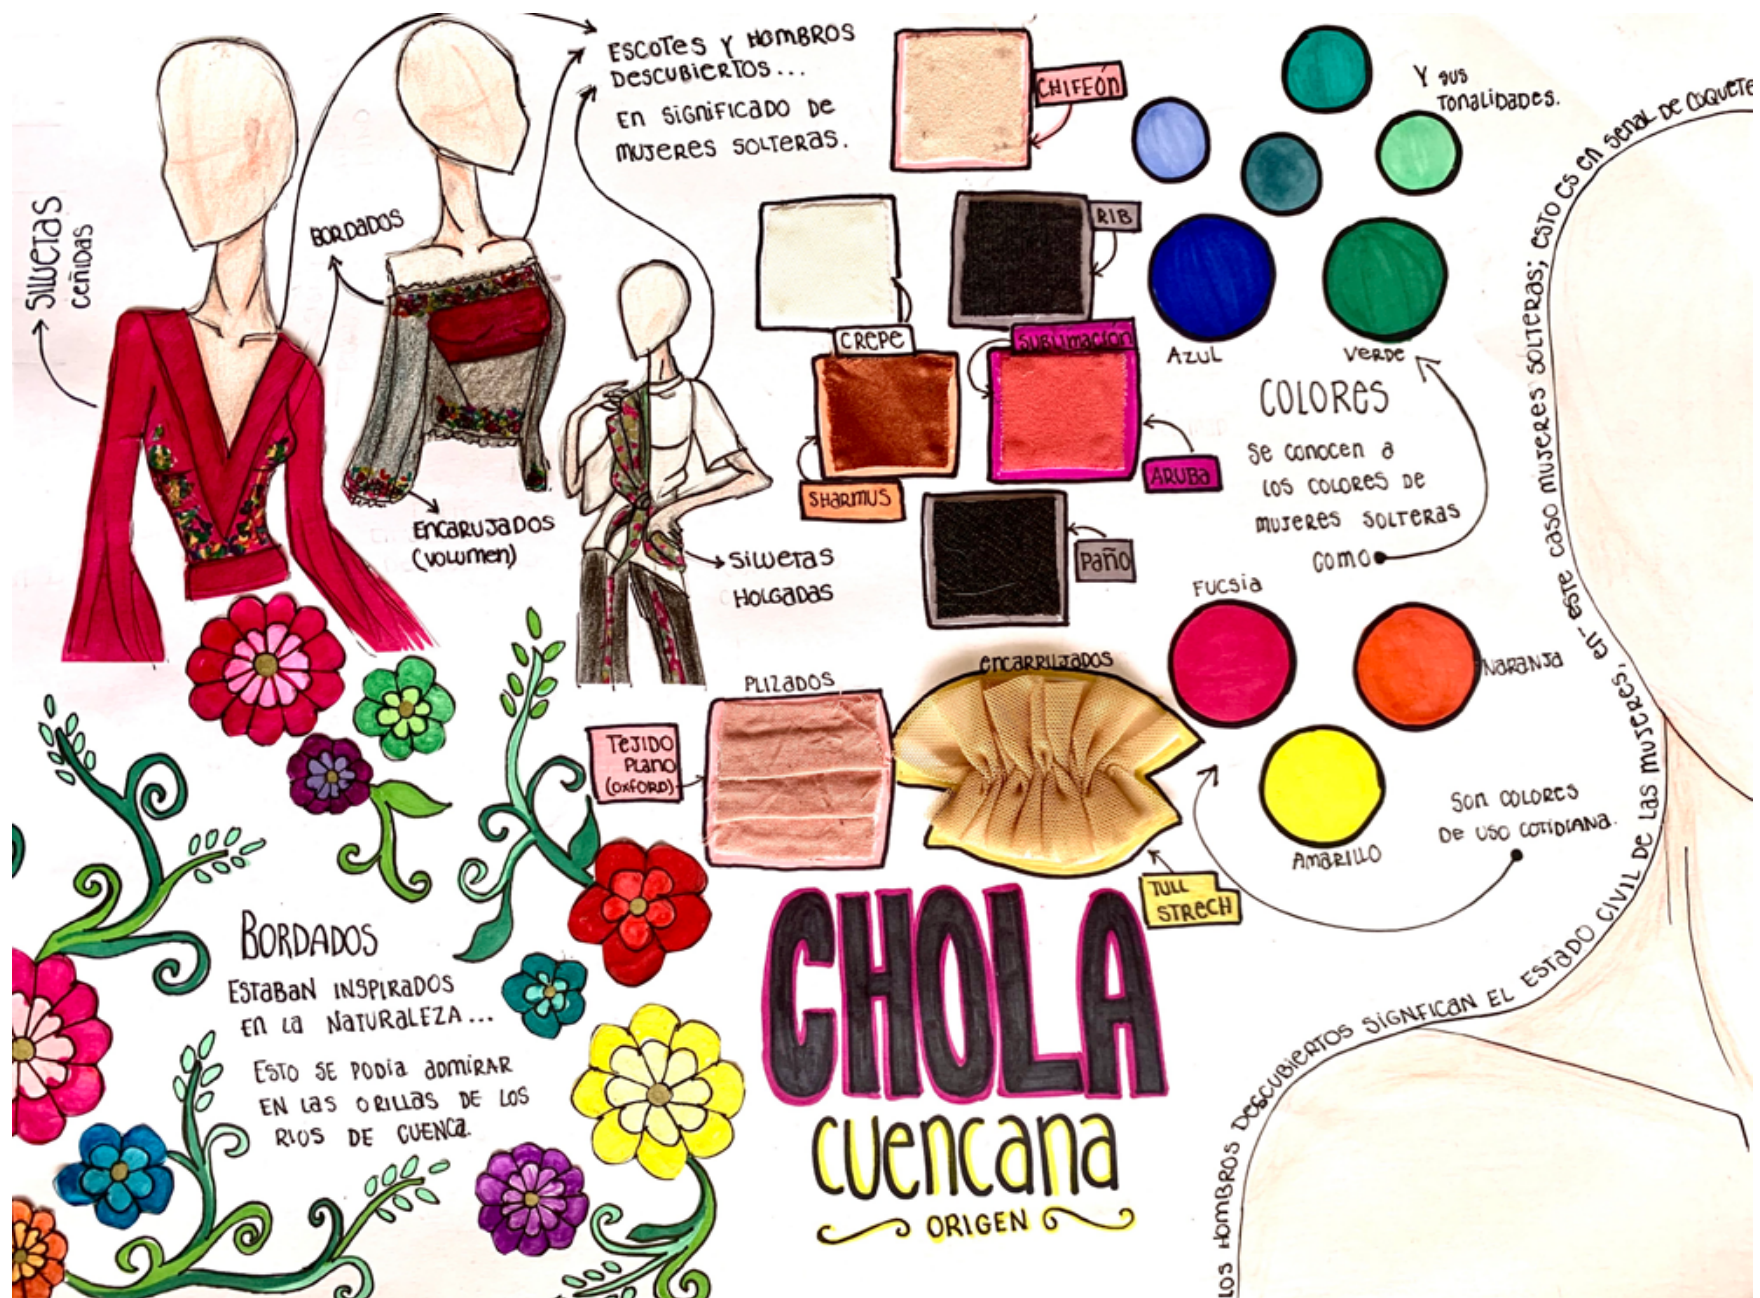 SILUETAS
CEÑIDAS
BORDADOS
ESCOTES Y HOMBROS
DESCUBIERTOS...
EN SIGNIFICADO DE
MUJERES SOLTERAS.
ENCARUJADOS
(VOLUMEN)
SILUETAS
HOLGADAS
CHIFFÓN
RIB
CREPE
SUBLIMACIÓN
SHARMUS
ARUBA
PAÑO
Y SUS
TONALIDADES.
AZUL
VERDE
COLORES
SE CONOCEN A
LOS COLORES DE
MUJERES SOLTERAS
COMO
FUCSIA
NARANJA
AMARILLO
SON COLORES
DE USO COTIDIANA.
PLIZADOS
ENCARRUJADOS
TEJIDO
PLANO
(OXFORD)
TULL
STRECH
BORDADOS
ESTABAN INSPIRADOS
EN LA NATURALEZA...
ESTO SE PODÍA ADMIRAR
EN LAS ORILLAS DE LOS
RIOS DE CUENCA.
CHOLA
CUENCANA
ORIGEN
LOS HOMBROS DESCUBIERTOS SIGNFICAN EL ESTADO CIVIL DE LAS MUJERES, EN ESTE CASO MUJERES SOLTERAS; ESTO ES EN SEÑAL DE COQUETE